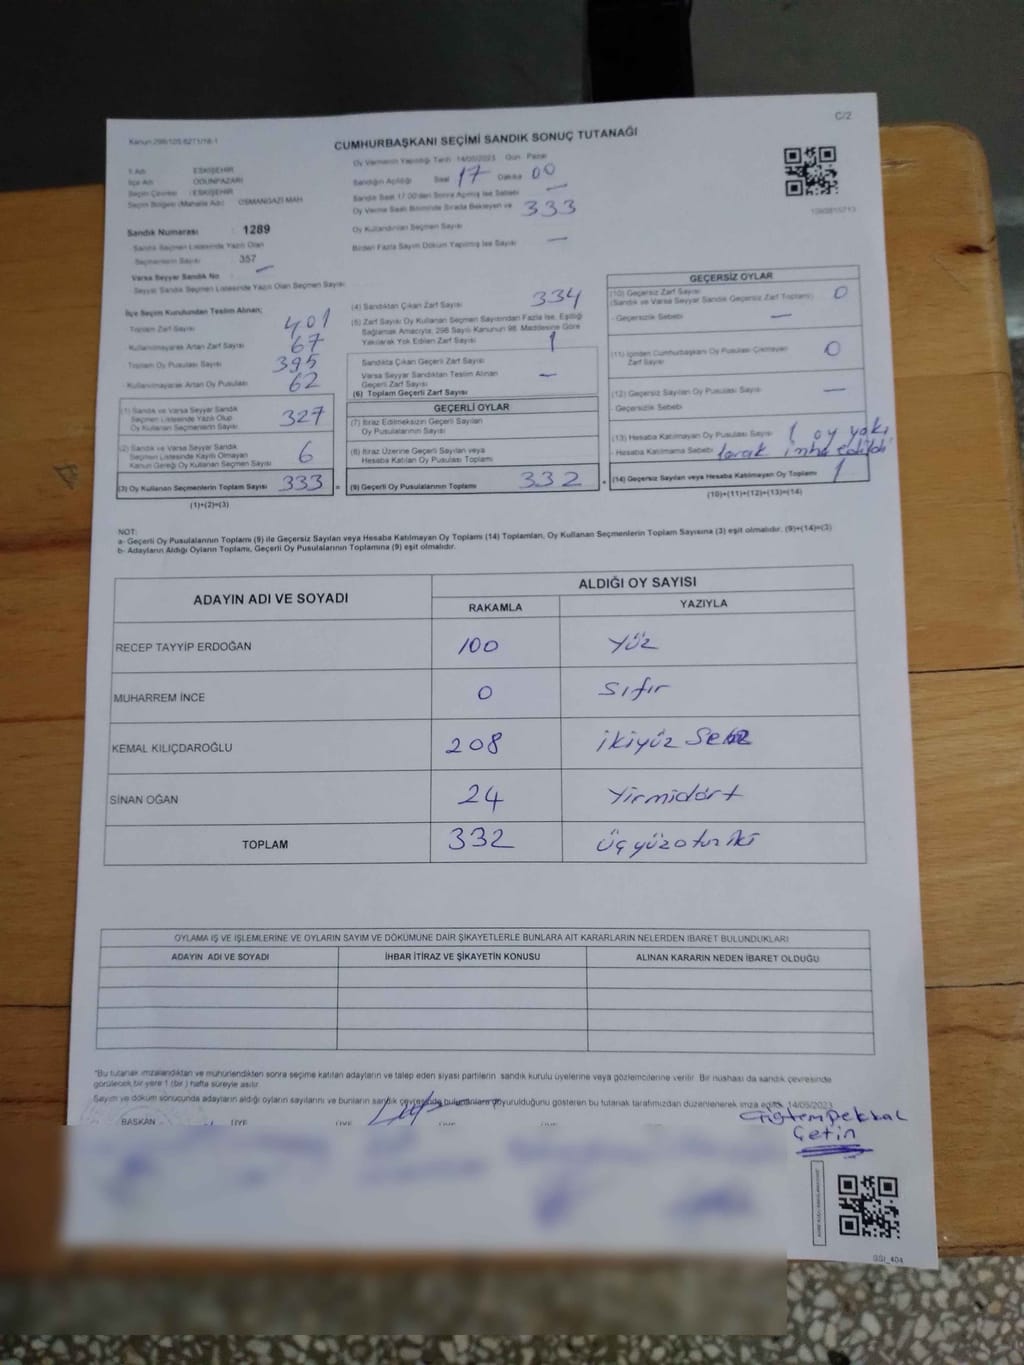 C/2
Kanun:298/105,6271/18-1
CUMHURBAŞKANI SEÇİMİ SANDIK SONUÇ TUTANAĞI
İl Adı : ESKİŞEHİR
İlçe Adı : ODUNPAZARI
Seçim Çevresi : ESKİŞEHİR
Seçim Bölgesi (Mahalle Adı) : OSMANGAZİ MAH
Sandık Numarası : 1289
Sandık Seçmen Listesinde Yazılı Olan
Seçmenlerin Sayısı : 357
Varsa Seyyar Sandık No : —
Seyyar Sandık Seçmen Listesinde Yazılı Olan Seçmen Sayısı:
Oy Vermenin Yapıldığı Tarih : 14/05/2023 Gün : Pazar
Sandığın Açıldığı Saat 17 Dakika 00
Sandık Saat 17.00'den Sonra Açılmış İse Sebebi —
Oy Verme Saati Bitiminde Sırada Bekleyen ve 333
Oy Kullandırılan Seçmen Sayısı
Birden Fazla Sayım Döküm Yapılmış İse Sayısı —
İlçe Seçim Kurulundan Teslim Alınan;
Toplam Zarf Sayısı 401
Kullanılmayarak Artan Zarf Sayısı 67
Toplam Oy Pusulası Sayısı 395
Kullanılmayarak Artan Oy Pusulası 62
(1) Sandık ve Varsa Seyyar Sandık
Seçmen Listesinde Yazılı Olup
Oy Kullanan Seçmenlerin Sayısı 327
(2) Sandık ve Varsa Seyyar Sandık
Seçmen Listesinde Kayıtlı Olmayan
Kanun Gereği Oy Kullanan Seçmen Sayısı 6
(3) Oy Kullanan Seçmenlerin Toplam Sayısı 333 =
(1)+(2)=(3)
(4) Sandıktan Çıkan Zarf Sayısı 334
(5) Zarf Sayısı Oy Kullanan Seçmen Sayısından Fazla İse, Eşitliği
Sağlamak Amacıyla; 298 Sayılı Kanunun 98. Maddesine Göre
Yakılarak Yok Edilen Zarf Sayısı 1
Sandıkta Çıkan Geçerli Zarf Sayısı
Varsa Seyyar Sandıktan Teslim Alınan —
Geçerli Zarf Sayısı
(6) Toplam Geçerli Zarf Sayısı
GEÇERLİ OYLAR
(7) İtiraz Edilmeksizin Geçerli Sayılan
Oy Pusulalarının Sayısı
(8) İtiraz Üzerine Geçerli Sayılan veya
Hesaba Katılan Oy Pusulası Toplamı
(9) Geçerli Oy Pusulalarının Toplamı 332 +
GEÇERSİZ OYLAR
(10) Geçersiz Zarf Sayısı
(Sandık ve Varsa Seyyar Sandık Geçersiz Zarf Toplamı) 0
- Geçersizlik Sebebi : —
(11) İçinden Cumhurbaşkanı Oy Pusulası Çıkmayan 0
Zarf Sayısı
(12) Geçersiz Sayılan Oy Pusulası Sayısı —
- Geçersizlik Sebebi
(13) Hesaba Katılmayan Oy Pusulası Sayısı 1 oy yakı
- Hesaba Katılmama Sebebi larak imha edildi
(14) Geçersiz Sayılan veya Hesaba Katılmayan Oy Toplamı 1
(10)+(11)+(12)+(13)=(14)
NOT:
a- Geçerli Oy Pusulalarının Toplamı (9) ile Geçersiz Sayılan veya Hesaba Katılmayan Oy Toplamı (14) Toplamları, Oy Kullanan Seçmenlerin Toplam Sayısına (3) eşit olmalıdır. (9)+(14)=(3)
b- Adayların Aldığı Oyların Toplamı, Geçerli Oy Pusulalarının Toplamına (9) eşit olmalıdır.
ADAYIN ADI VE SOYADI
ALDIĞI OY SAYISI
RAKAMLA YAZIYLA
RECEP TAYYİP ERDOĞAN 100 Yüz
MUHARREM İNCE 0 Sıfır
KEMAL KILIÇDAROĞLU 208 ikiyüz
SİNAN OĞAN 24 Yirmidört
TOPLAM 332 üçyüzotuziki
OYLAMA İŞ VE İŞLEMLERİNE VE OYLARIN SAYIM VE DÖKÜMÜNE DAİR ŞİKAYETLERLE BUNLARA AİT KARARLARIN NELERDEN İBARET BULUNDUKLARI
ADAYIN ADI VE SOYADI İHBAR İTİRAZ VE ŞİKAYETİN KONUSU ALINAN KARARIN NEDEN İBARET OLDUĞU
"Bu tutanak imzalandıktan ve mühürlendikten sonra seçime katılan adayların ve talep eden siyasi partilerin sandık kurulu üyelerine veya gözlemcilerine verilir. Bir nüshası da sandık çevresinde
görülecek bir yere 1 (bir) hafta süreyle asılır.
Sayım ve döküm sonucunda adayların aldığı oyların sayılarını ve bunların sandık çevresinde bulunanlara duyurulduğunu gösteren bu tutanak tarafımızdan düzenlenerek imza edildi. 14/05/2023
BAŞKAN ÜYE ÜYE ÜYE ÜYE
Çetin
SSI_404